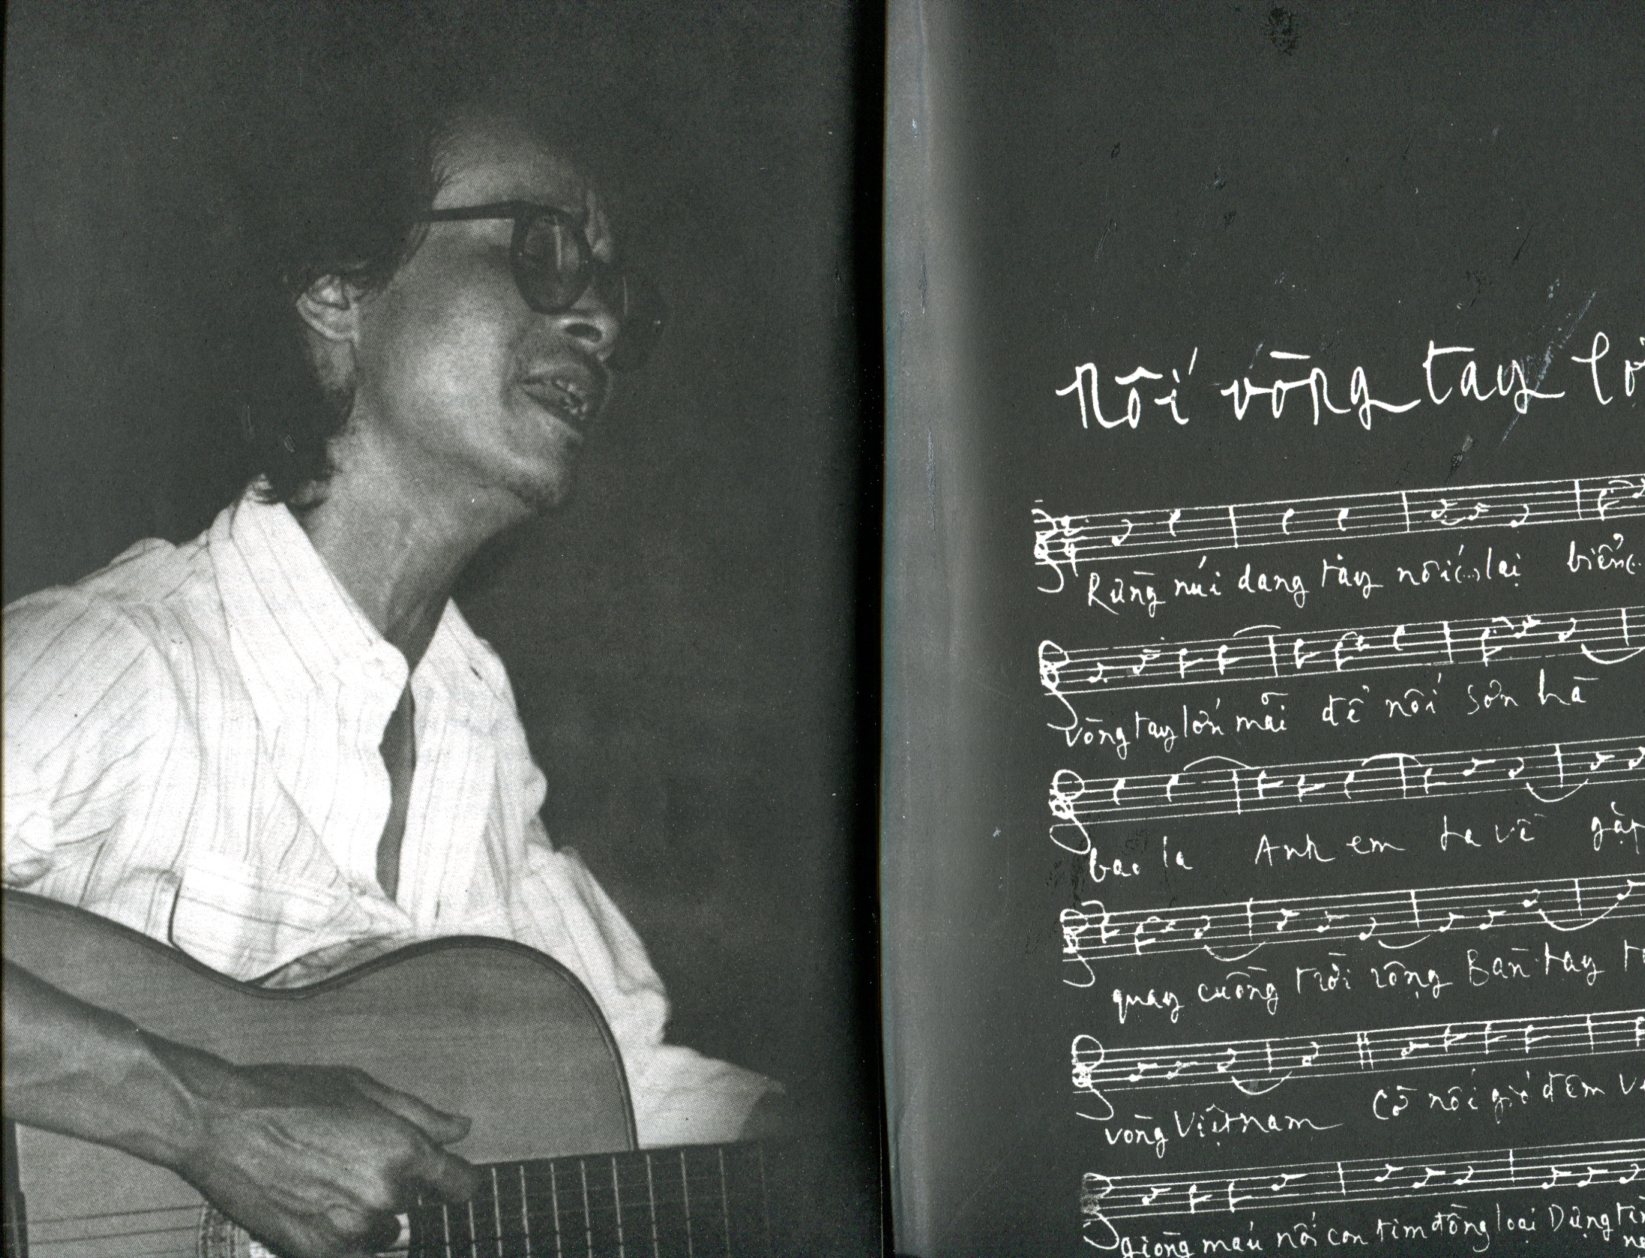 Nối vòng tay
Rừng núi dang tay nối lại biển
vòng tay lớn mãi để nối sơn hà
bao la Anh em ta về gặp
quay cuồng trời rộng Bàn tay
vòng Việt nam Cờ nối gió đêm
giòng máu nối con tim đồng loại Dựng